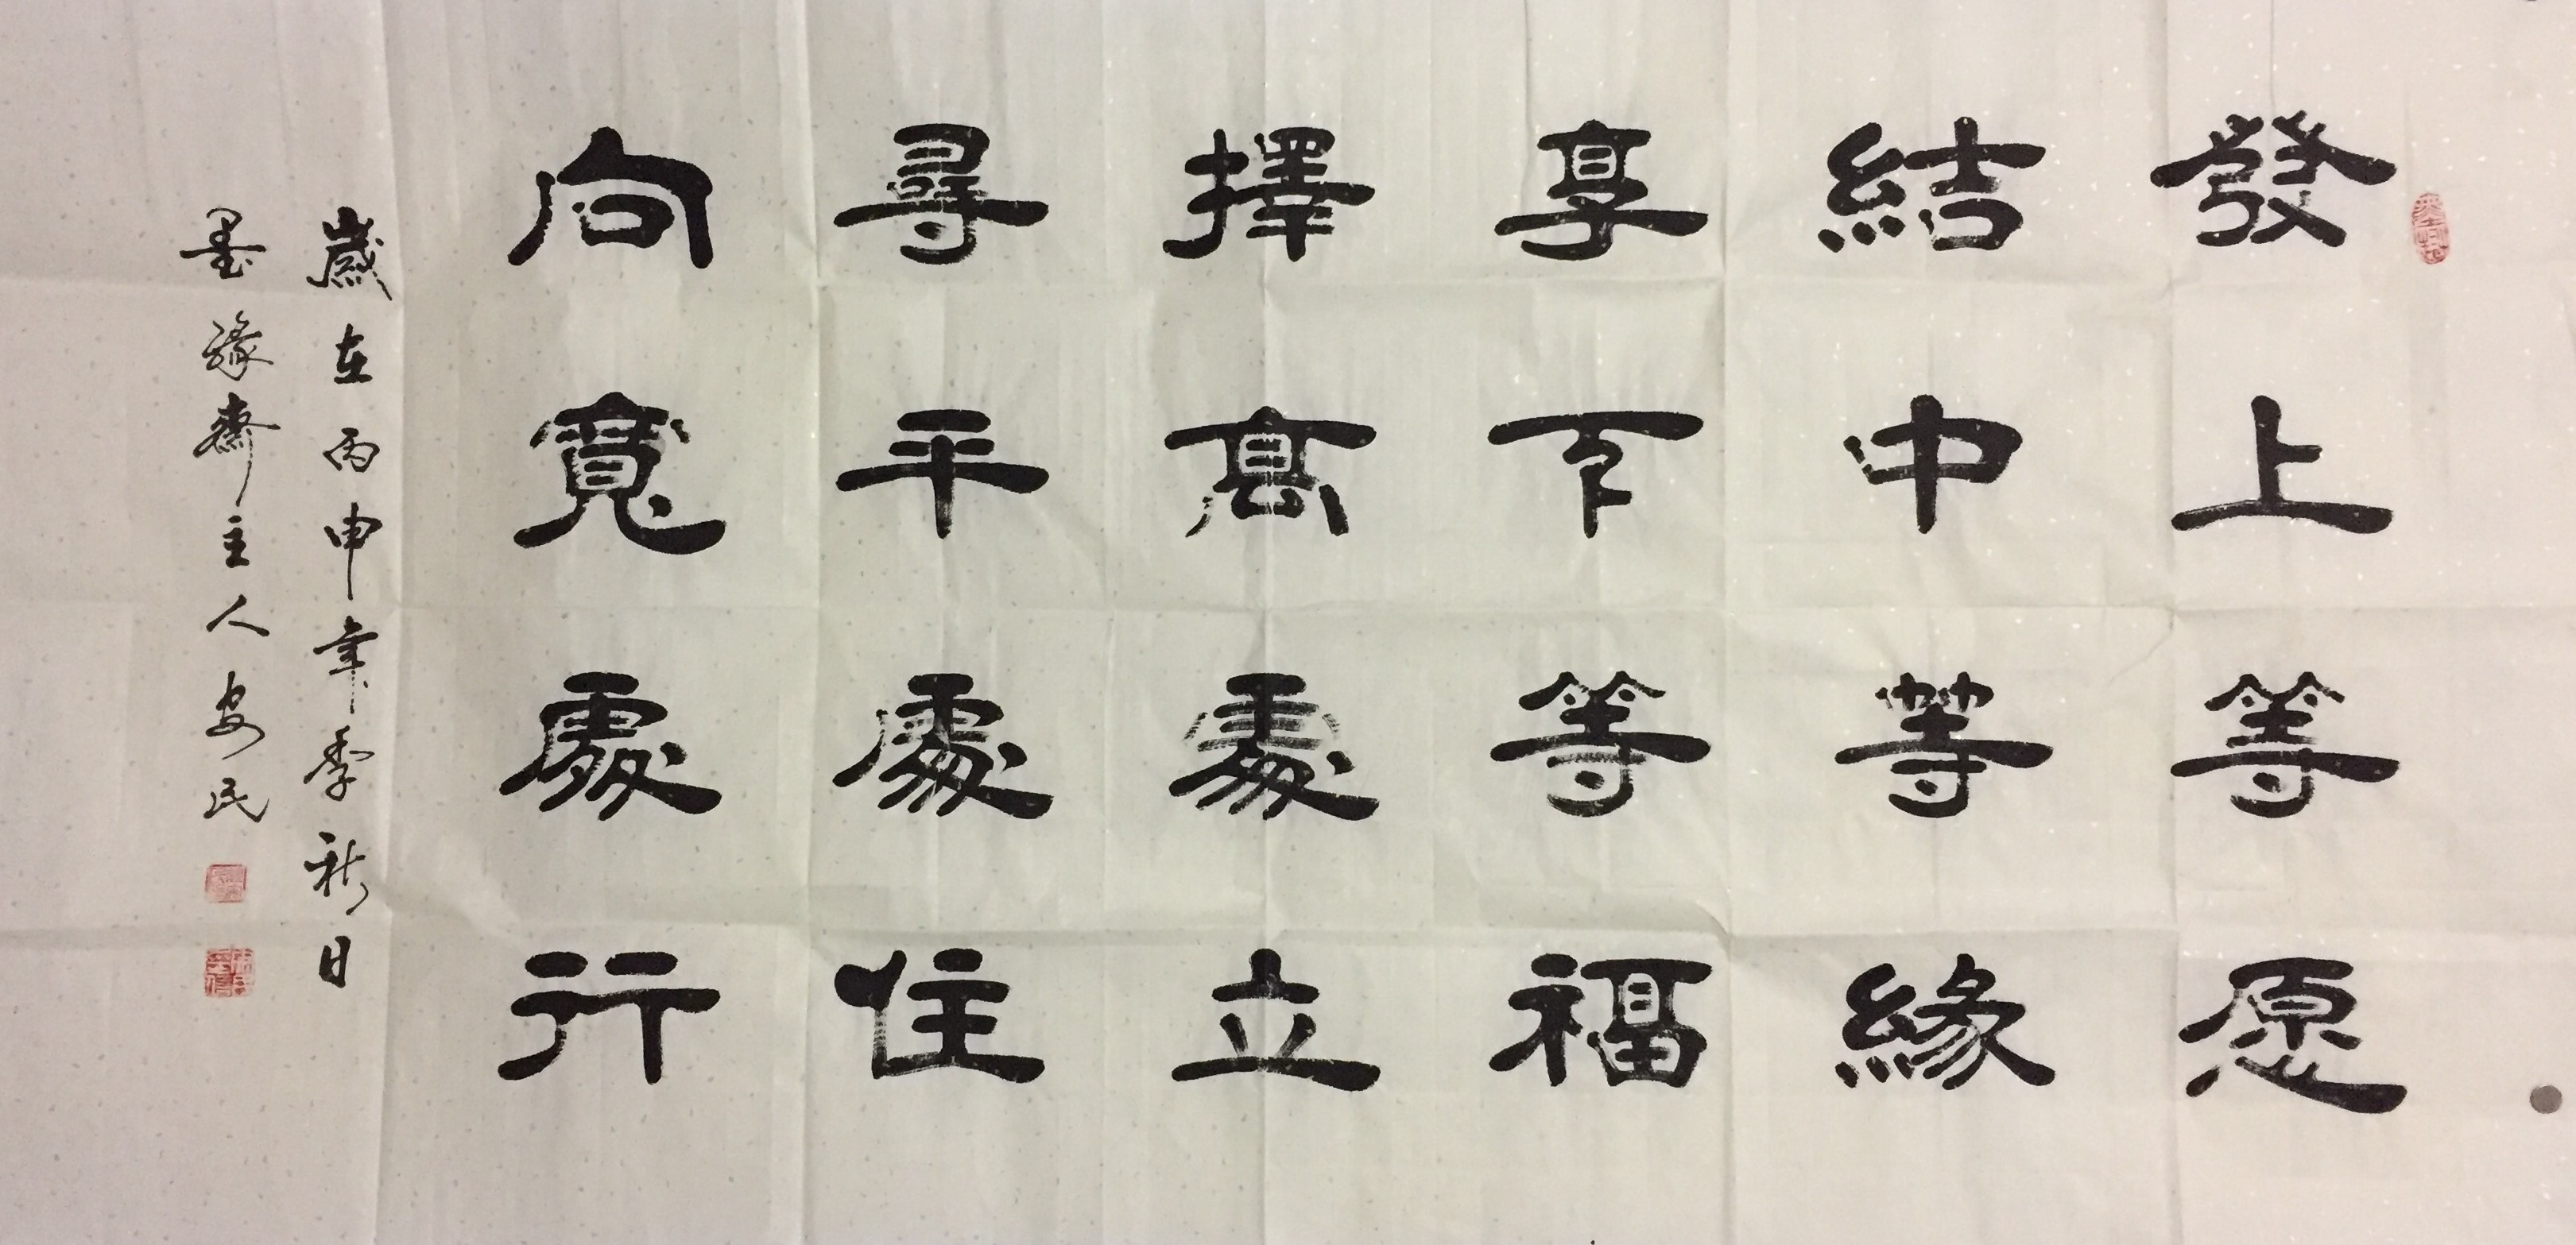 發上等愿
結中等緣
享下等福
擇高處立
尋平處住
向寬處行
歲在丙申年季秋日
墨緣齋主人安民